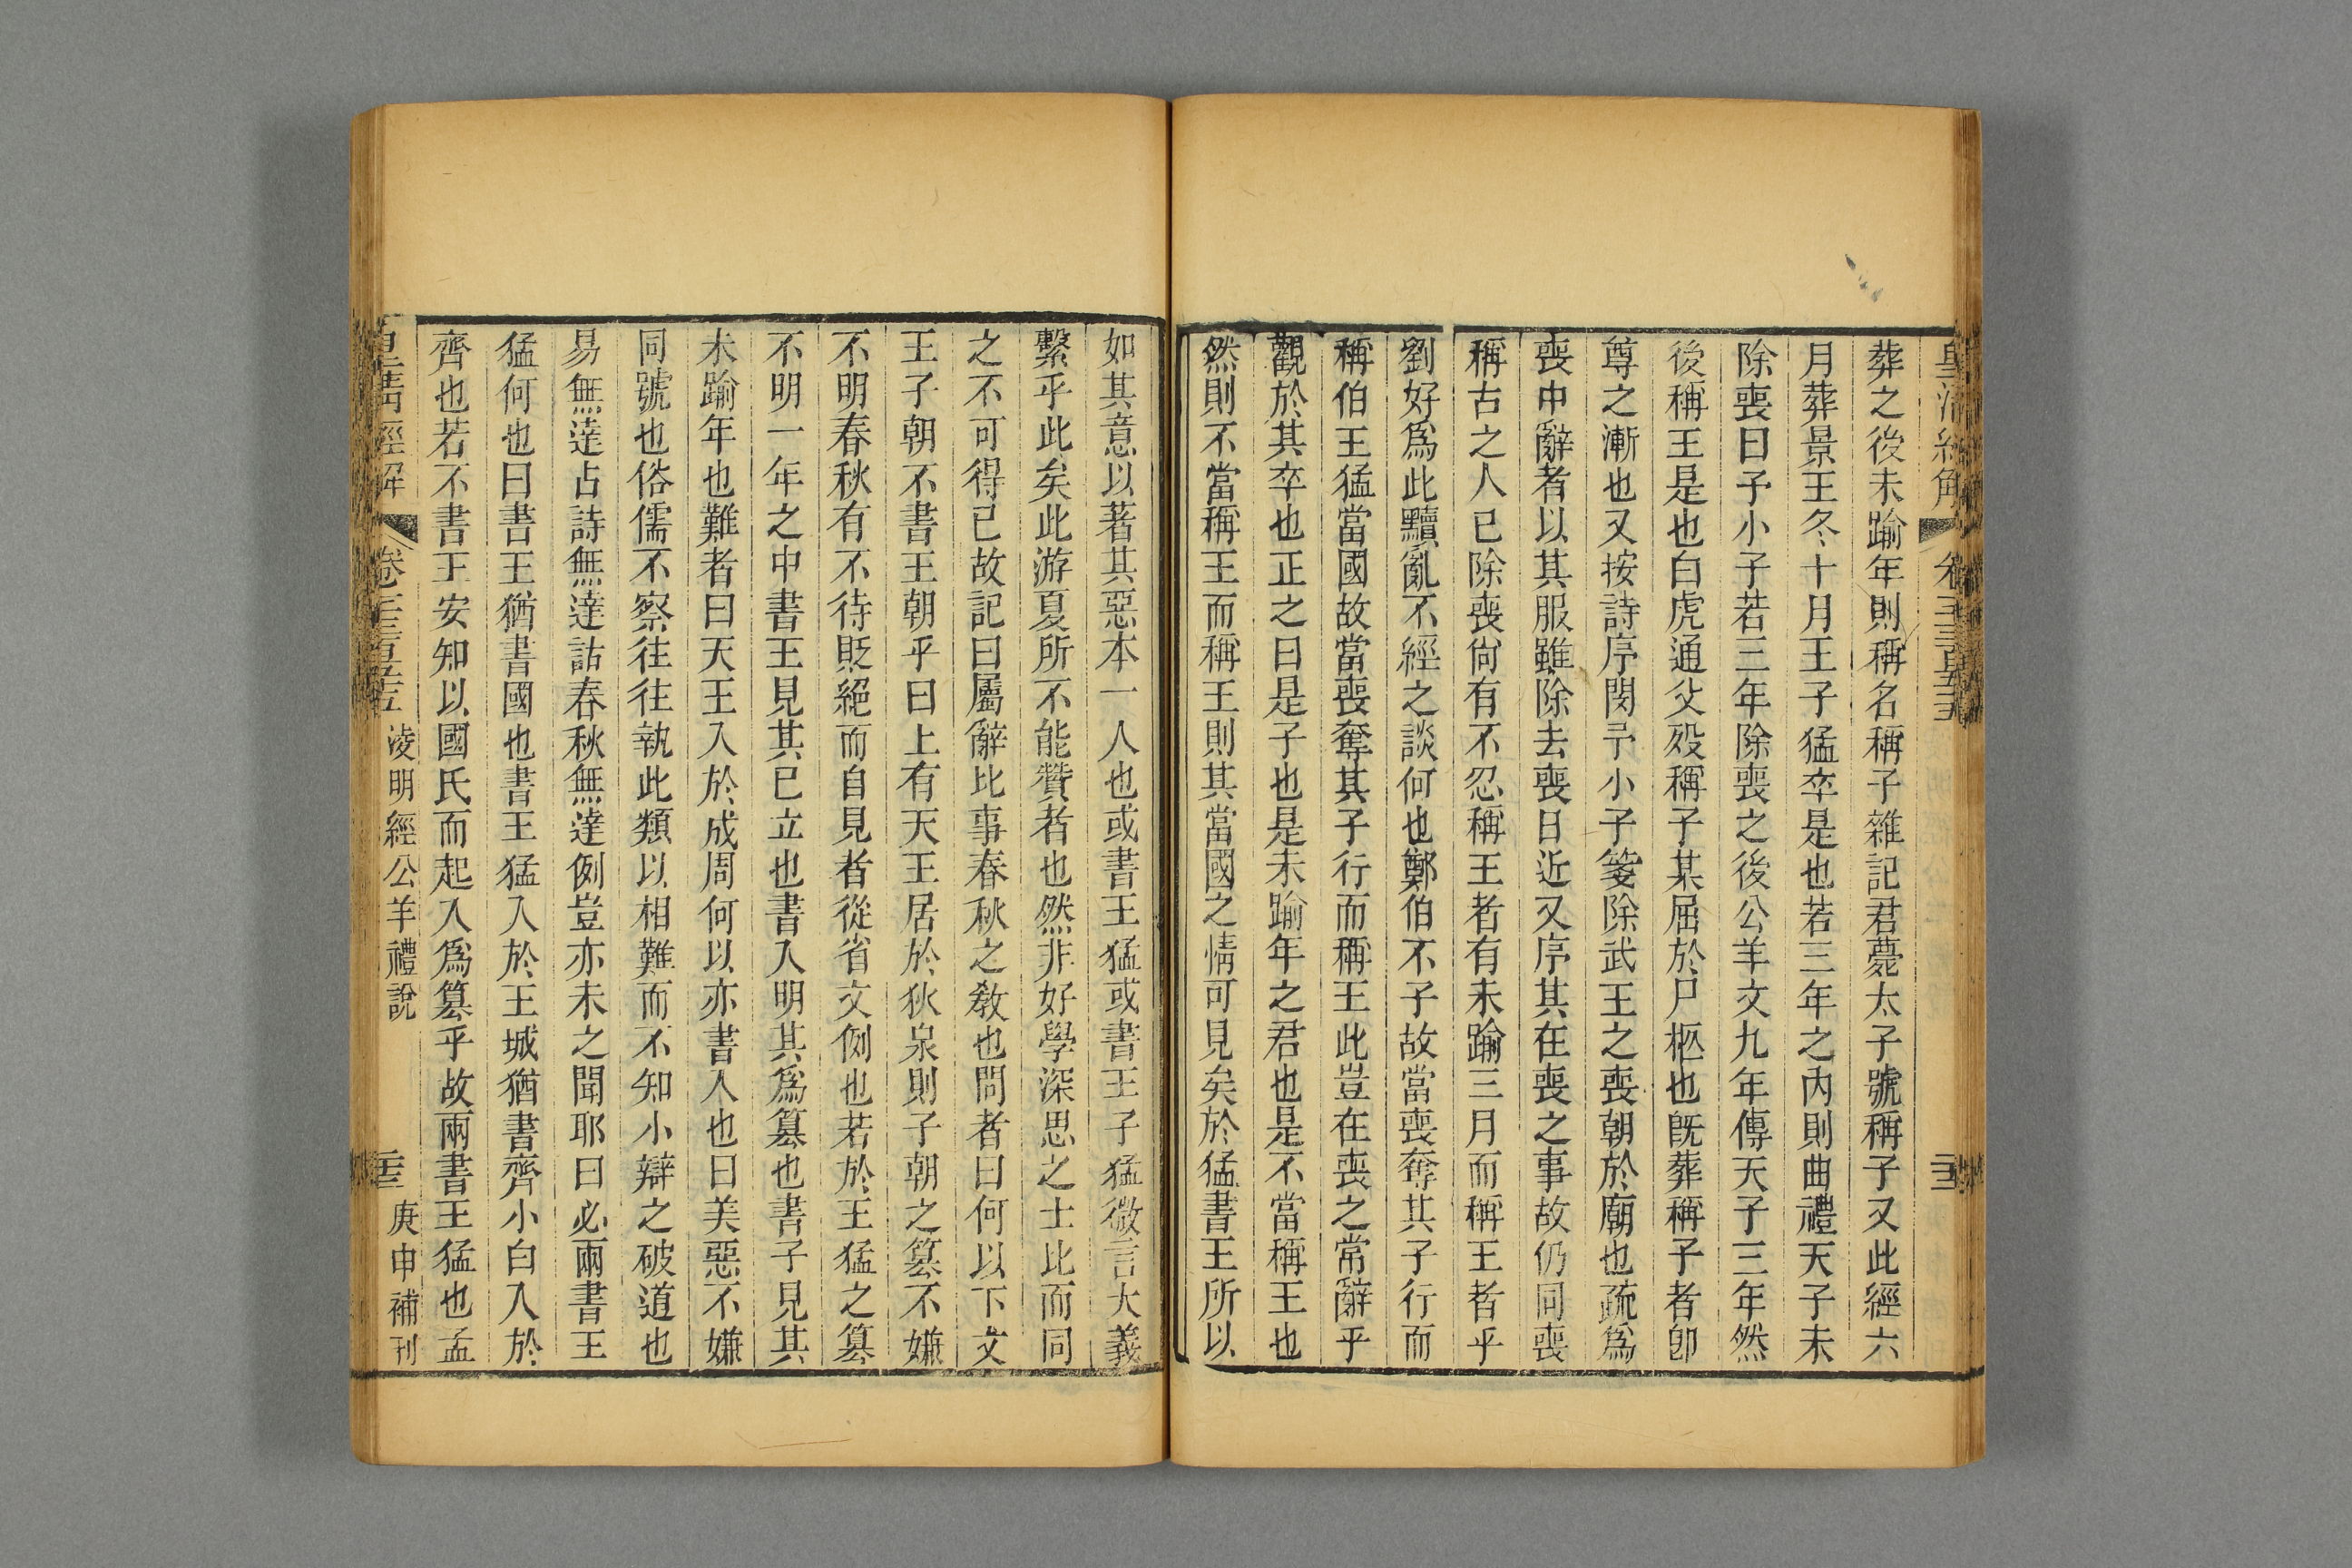 葬之後未踰年則稱名稱子雜記君薨太子號稱子又此經六
月葬景王冬十月王子猛卒是也若三年之內則曲禮天子未
除喪曰予小子若三年除喪之後公羊文九年傳天子三年然
後稱王是也白虎通父歿稱子某屈於尸柩也旣葬稱子者卽
尊之漸也又按詩序閔予小子箋除武王之喪朝於廟也疏爲
喪中辭者以其服雖除去喪日近又序其在喪之事故仍同喪
稱古之人已除喪尙有不忍稱王者有未踰三月而稱王者乎
劉好爲此黷亂不經之談何也鄭伯不子故當喪奪其子行而
稱伯王猛當國故當喪奪其子行而稱王此豈在喪之常辭乎
觀於其卒也正之曰是子也是未踰年之君也是不當稱王也
然則不當稱王而稱王則其當國之情可見矣於猛書王所以
如其意以著其惡本一人也或書王猛或書王子猛微言大義
繫乎此矣此游夏所不能贊者也然非好學深思之士比而同
之不可得已故記曰屬辭比事春秋之敎也問者曰何以下文
王子朝不書王朝乎曰上有天王居於狄泉則子朝之篡不嫌
不明春秋有不待貶絕而自見者從省文例也若於王猛之篡
不明一年之中書王見其已立也書入明其爲篡也書子見其
未踰年也難者曰天王入於成周何以亦書入也曰美惡不嫌
同號也俗儒不察往往執此類以相難而不知小辯之破道也
易無達占詩無達詁春秋無達例豈亦未之聞耶曰必兩書王
猛何也曰書王猶書國也書王猛入於王城猶書齊小白入於
齊也若不書王安知以國氏而起入爲篡乎故兩書王猛也孟
皇淸經解 卷一千三百五十五 淩明經公羊禮說 庚申補刊